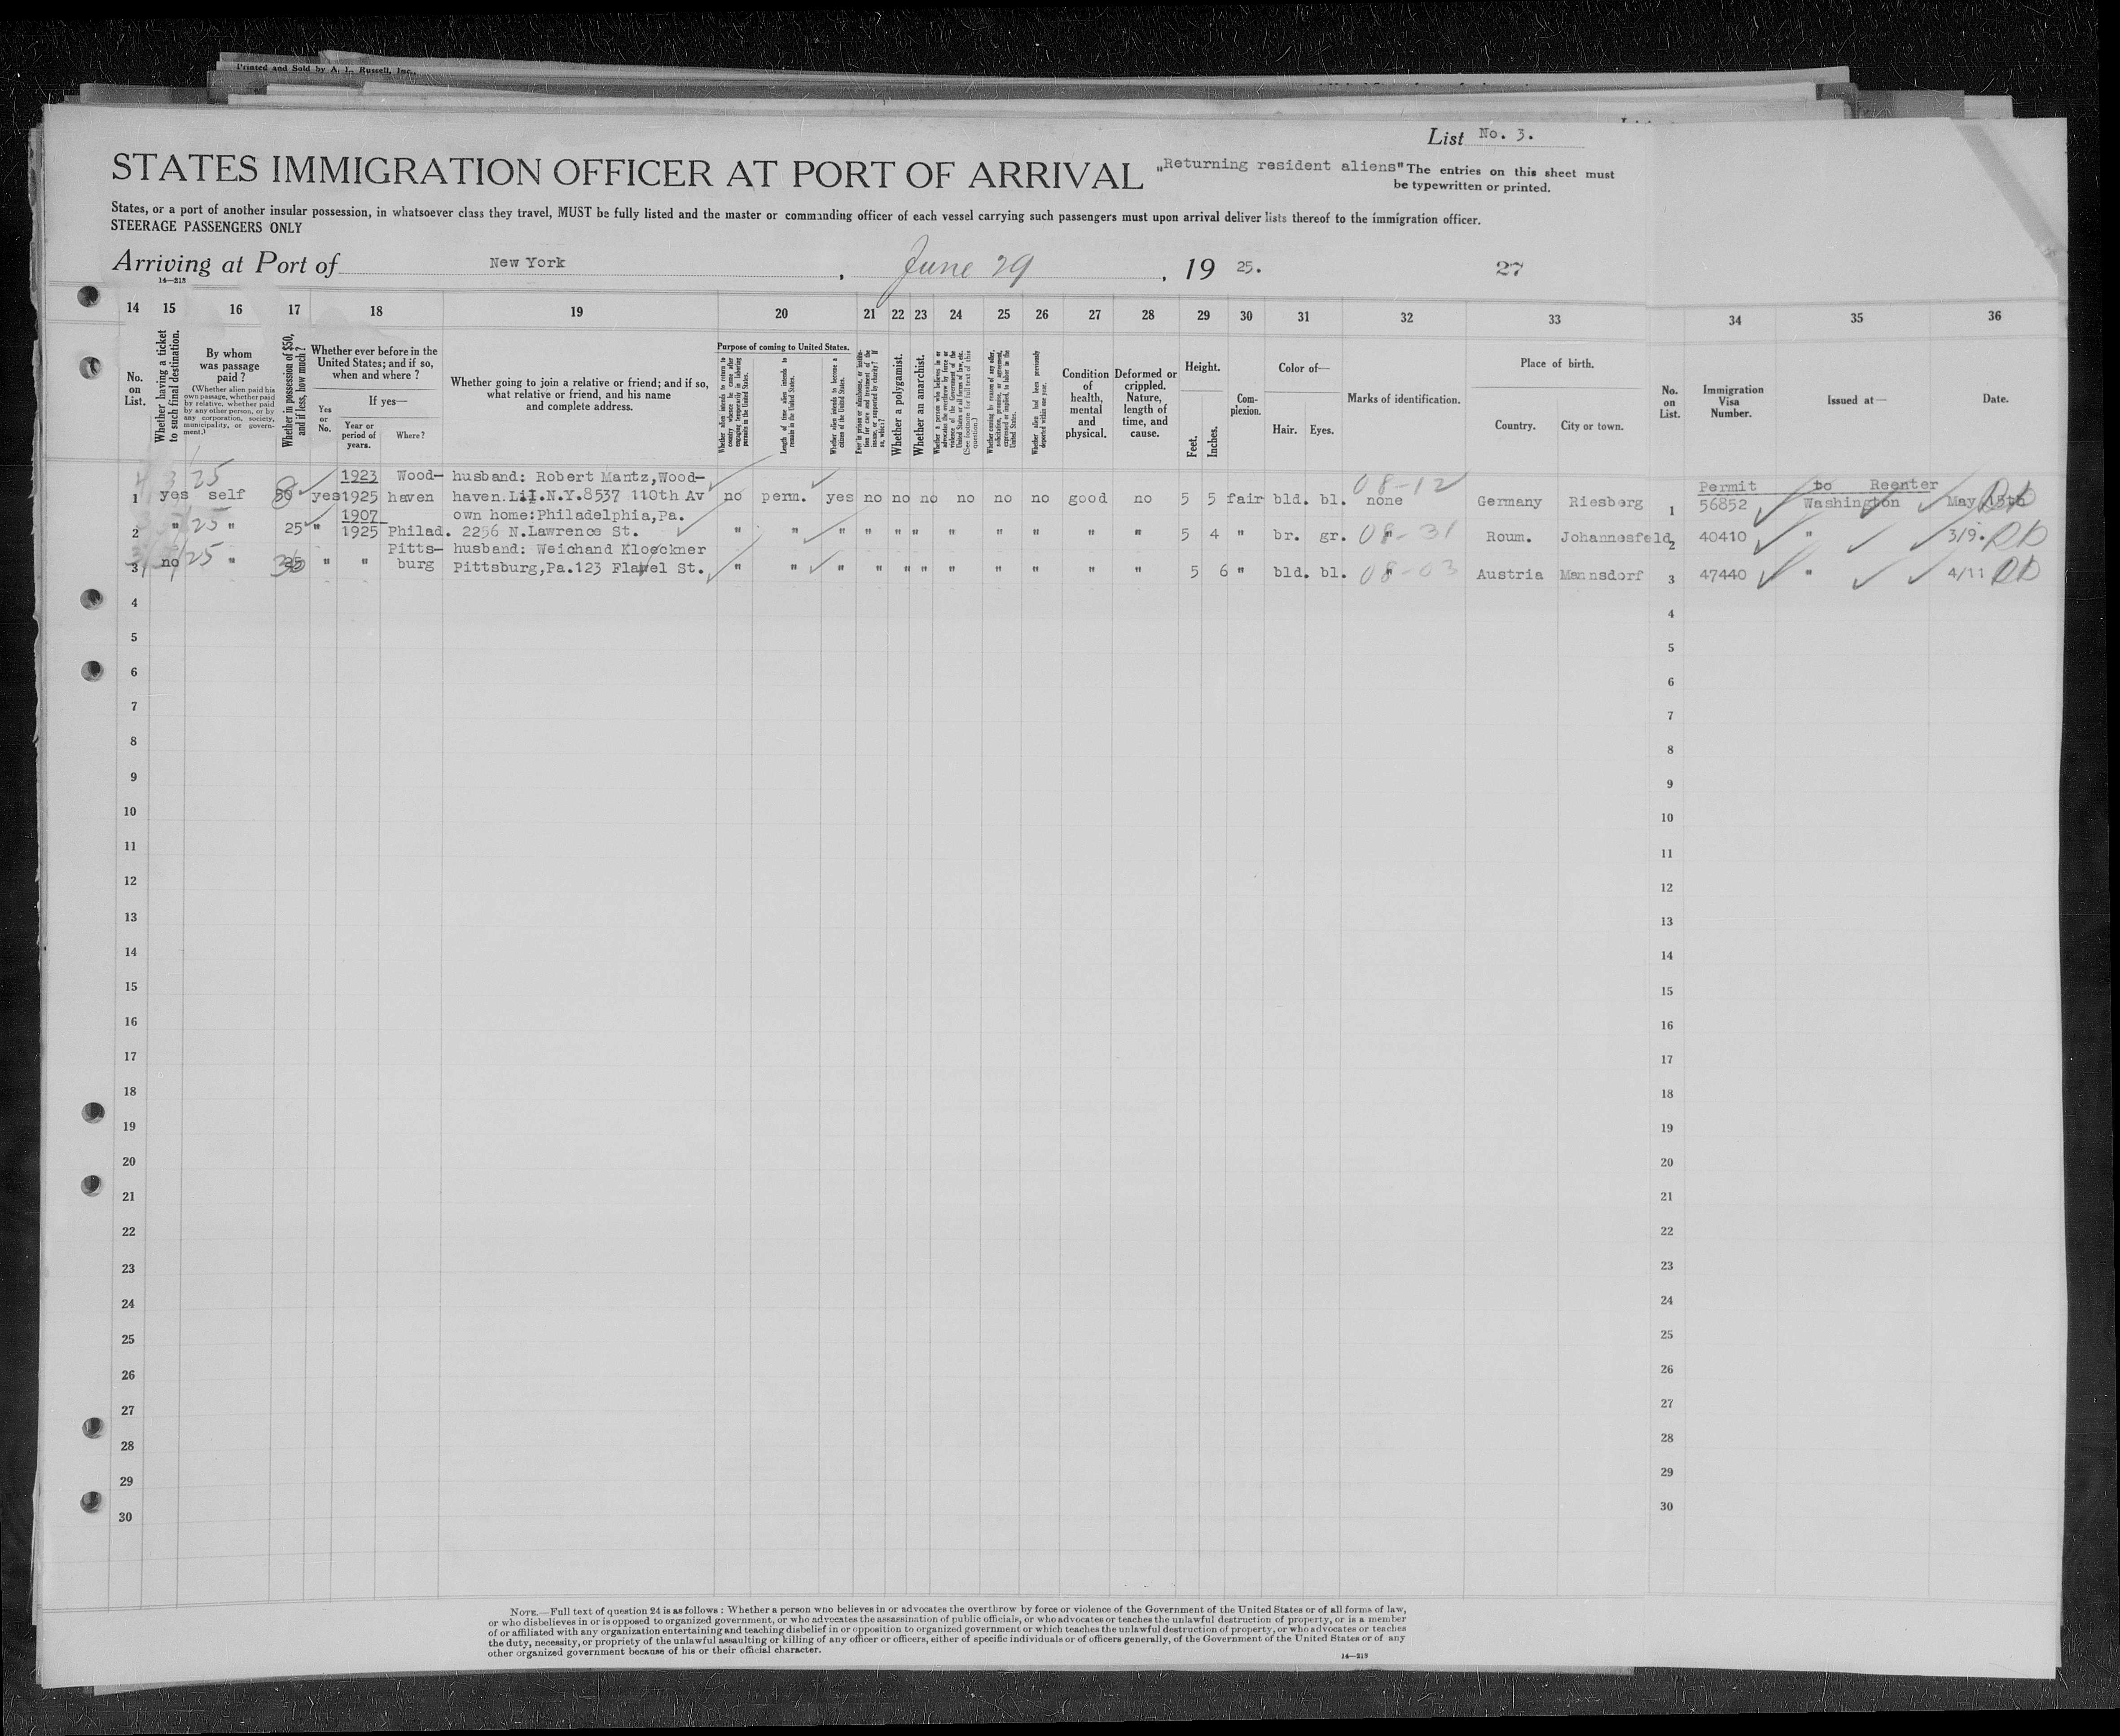 Printed and Sold by A. L. Russell, Inc.,
List No. 3.
STATES IMMIGRATION OFFICER AT PORT OF ARRIVAL
„Returning resident aliens" The entries on this sheet must
be typewritten or printed.
States, or a port of another insular possession, in whatsoever class they travel, MUST be fully listed and the master or commanding officer of each vessel carrying such passengers must upon arrival deliver lists thereof to the immigration officer.
STEERAGE PASSENGERS ONLY
Arriving at Port of New York, June 29, 1925.
27
14—213
14 15 16 17 18 19 20 21 22 23 24 25 26 27 28 29 30 31 32 33 34 35 36
No. on List.
Whether having a ticket to such final destination.
By whom was passage paid?
(Whether alien paid his own passage, whether paid by relative, whether paid by any other person, or by any corporation, society, municipality, or government.)
Whether in possession of $50, and if less, how much?
Whether ever before in the United States; and if so, when and where?
Yes or No.
If yes—
Year or period of years.
Where?
Whether going to join a relative or friend; and if so, what relative or friend, and his name and complete address.
Purpose of coming to United States.
Whether alien intends to return to country whence he came after engaging temporarily in laboring pursuits in the United States.
Length of time alien intends to remain in the United States.
Whether alien intends to become a citizen of the United States.
Ever in prison or almshouse, or institution for care and treatment of the insane, or supported by charity? If so, which?
Whether a polygamist.
Whether an anarchist.
Whether a person who believes in or advocates the overthrow by force or violence of the Government of the United States or all forms of law, etc. (See footnote for full text of this question.)
Whether coming by reason of any offer, solicitation, promise, or agreement, expressed or implied, to labor in the United States.
Whether alien had been previously deported within one year.
Condition of health, mental and physical.
Deformed or crippled. Nature, length of time, and cause.
Height.
Feet.
Inches.
Complexion.
Color of—
Hair.
Eyes.
Marks of identification.
Place of birth.
Country.
City or town.
No. on List.
Immigration Visa Number.
Issued at—
Date.
1923 Wood- husband: Robert Mantz, Wood- 08-12 Permit to Reenter
1 yes self 50 yes 1925 haven haven. L.I. N.Y. 8537 110th Av no perm. yes no no no no no no good no 5 5 fair bld. bl. none Germany Riesberg 1 56852 Washington May 15th
1907 own home: Philadelphia, Pa.
2 " 25 " 25 " 1925 Philad. 2256 N. Lawrence St. " " " " " " " " " " " 5 4 " br. gr. 08-31 " Roum. Johannesfeld 2 40410 " 3/9.
Pitts- husband: Weichand Kloeckner
3 no 25 " " " burg Pittsburg, Pa. 123 Flavel St. " " " " " " " " " " " 5 6 " bld. bl. 08-03 " Austria Mannsdorf 3 47440 " 4/11
4 4
5 5
6 6
7 7
8 8
9 9
10 10
11 11
12 12
13 13
14 14
15 15
16 16
17 17
18 18
19 19
20 20
21 21
22 22
23 23
24 24
25 25
26 26
27 27
28 28
29 29
30 30
NOTE.—Full text of question 24 is as follows: Whether a person who believes in or advocates the overthrow by force or violence of the Government of the United States or of all forms of law,
or who disbelieves in or is opposed to organized government, or who advocates the assassination of public officials, or who advocates or teaches the unlawful destruction of property, or is a member
of or affiliated with any organization entertaining and teaching disbelief in or opposition to organized government or which teaches the unlawful destruction of property, or who advocates or teaches
the duty, necessity, or propriety of the unlawful assaulting or killing of any officer or officers, either of specific individuals or of officers generally, of the Government of the United States or of any
other organized government because of his or their official character.
14—213